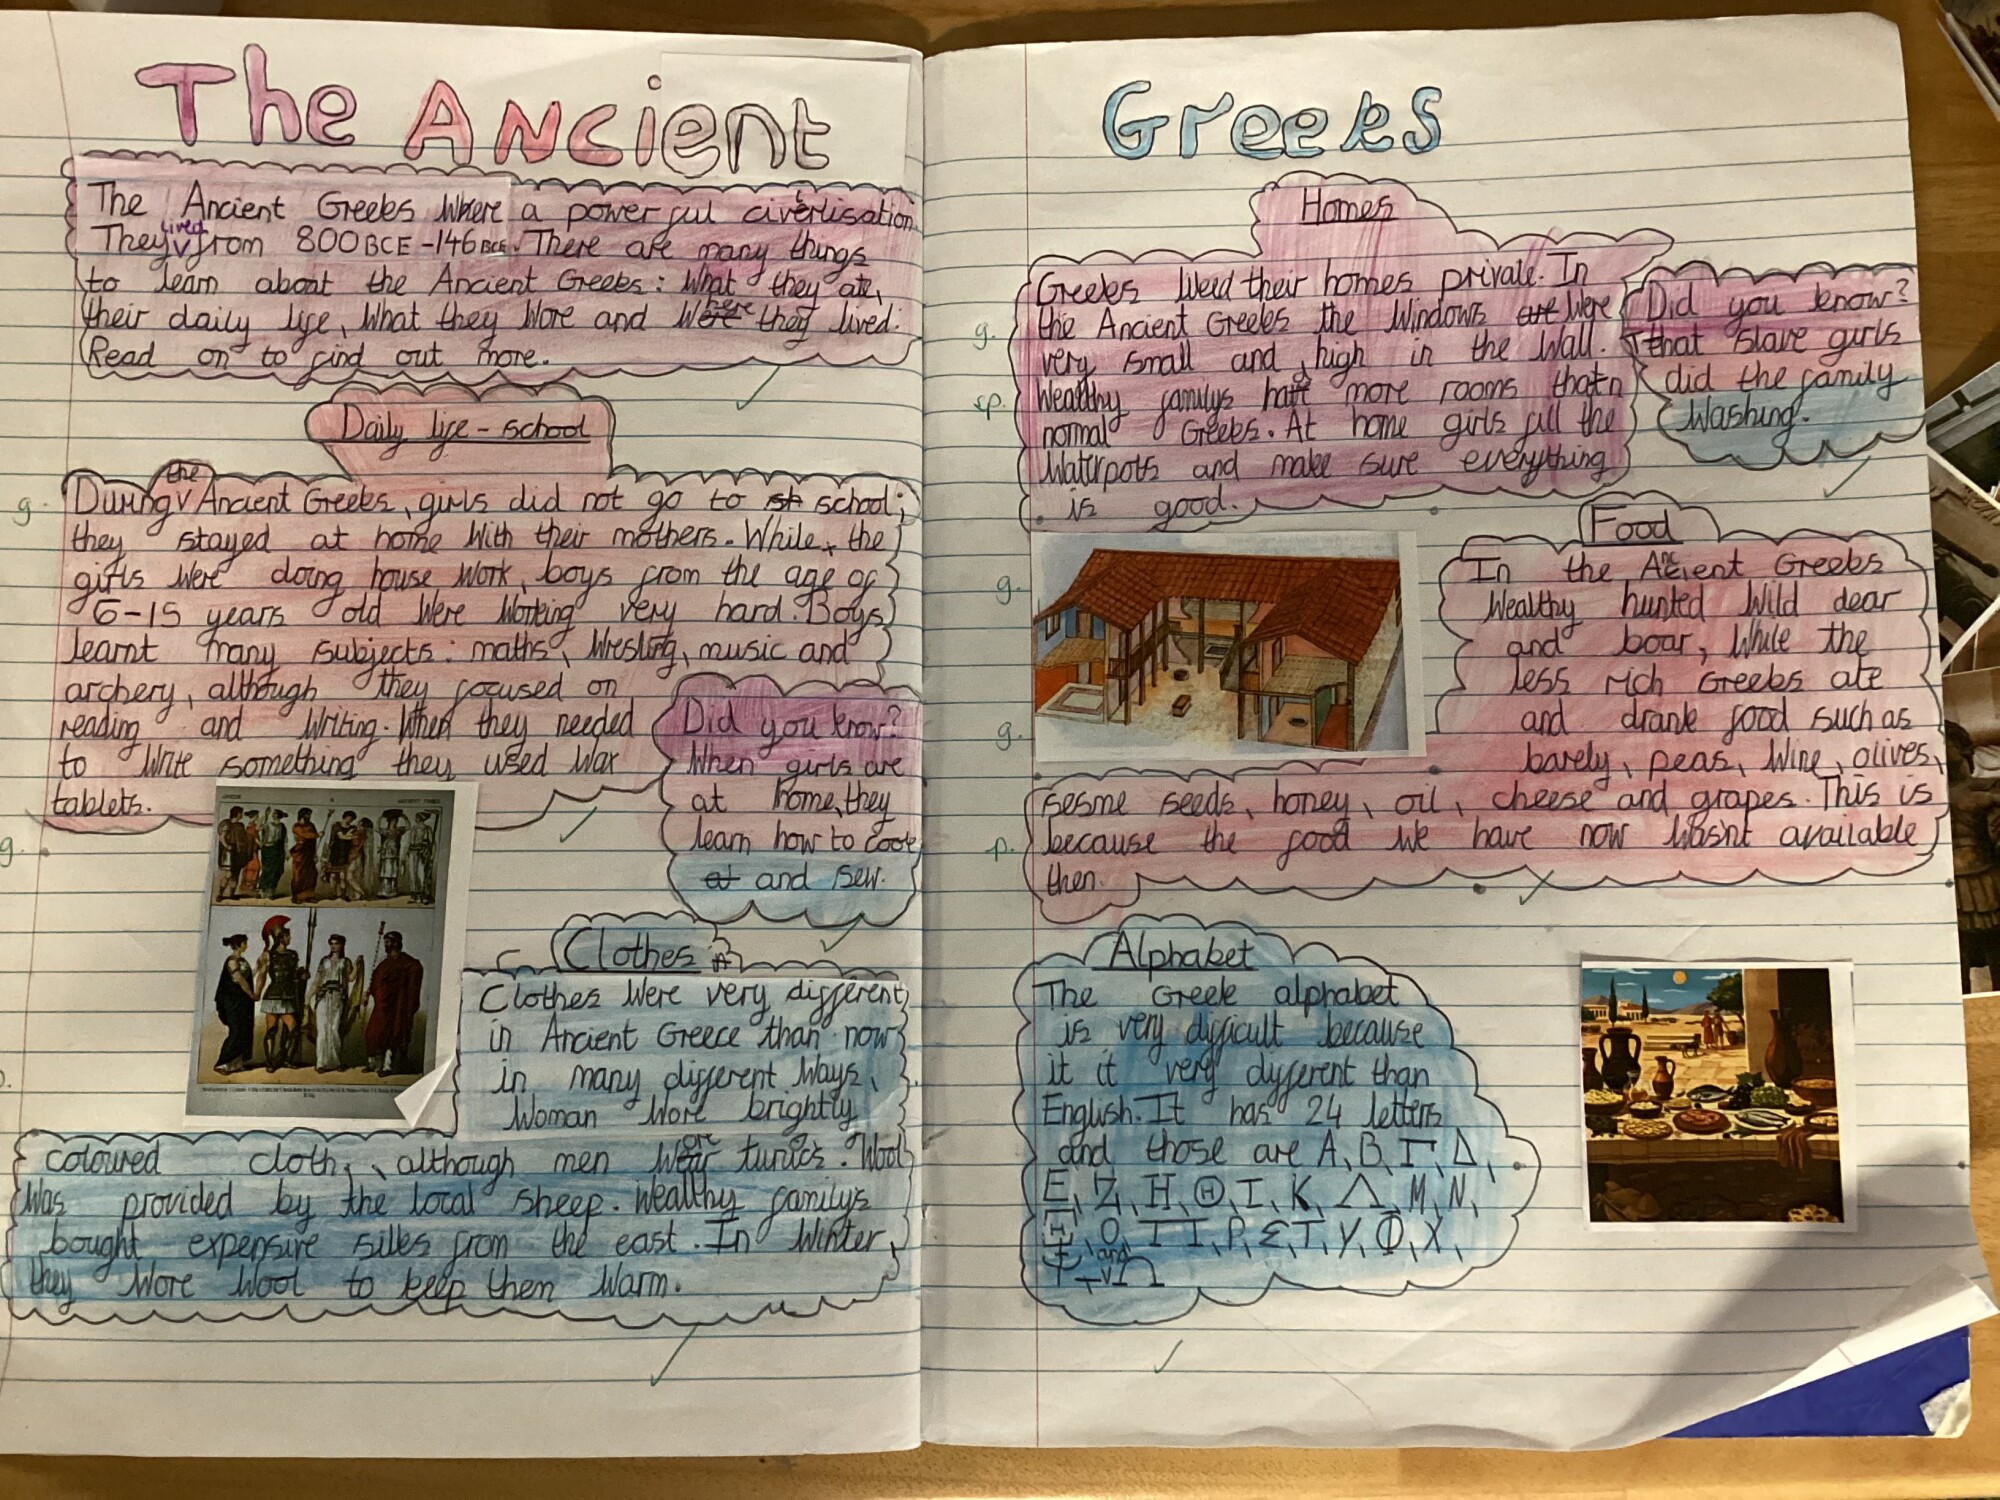 The Ancient Greeks
The Ancient Greeks Where a powerful civertlisation.
They lived from 800BCE-146BCE. There are many things
to learn about the Ancient Greeks: What they ate,
their daily life, What they Wore and Where they lived.
Read on to find out more.
Daily life - school
During the Ancient Greeks, girls did not go to sh school;
they stayed at home With their mothers. While, the
girls Were doing house Work, boys from the age of
6-15 years old Were Working very hard. Boys
learnt many subjects: maths, Wresling, music and
archery, although they focused on
reading and Writing. When they needed
to Write something they used Wax
tablets.
Did you know?
When girls are
at home, they
learn how to cook
at and sew.
Clothes
Clothes Were very different
in Ancient Greece than now
in many different Ways,
Woman Wore brightly
coloured cloth, although men Wore tunics. Wool
Was provided by the local sheep. Wealthy familys
bought expensive silks from the east. In Winter,
they Wore Wool to keep them Warm.
Homes
Greeks liked their homes private. In
g. the Ancient Greeks the Windows are Were
very small and high in the Wall.
sp. Wealthy familys had more rooms than
normal Greeks. At home girls fill the
Waterpots and make sure everything
is good.
Did you know?
that slave girls
did the family
Washing.
Food
In the Ancient Greeks
Wealthy hunted Wild dear
and boar, While the
less rich Greeks ate
and drank food such as
barely, peas, Wine, olives,
sesme seeds, honey, oil, cheese and grapes. This is
p. because the food We have now Wasnt available
then.
Alphabet
The Greek alphabet
is very difficult because
it it very different than
English. It has 24 letters
and those are A, B, Γ, Δ,
E, Z, H, Θ, I, K, Λ, M, N,
Ξ, O, Π, P, Σ, T, Y, Φ, X,
Ψ and Ω
g.
g.
g.
g.